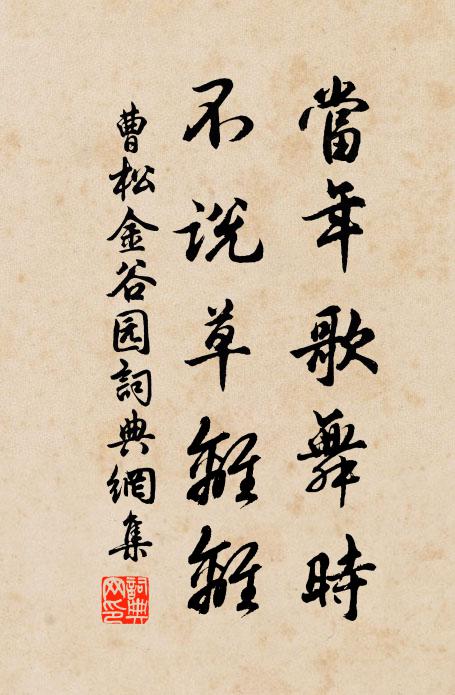 當年歌舞時
不说草離離
曹松金谷园詞典網集
詞典